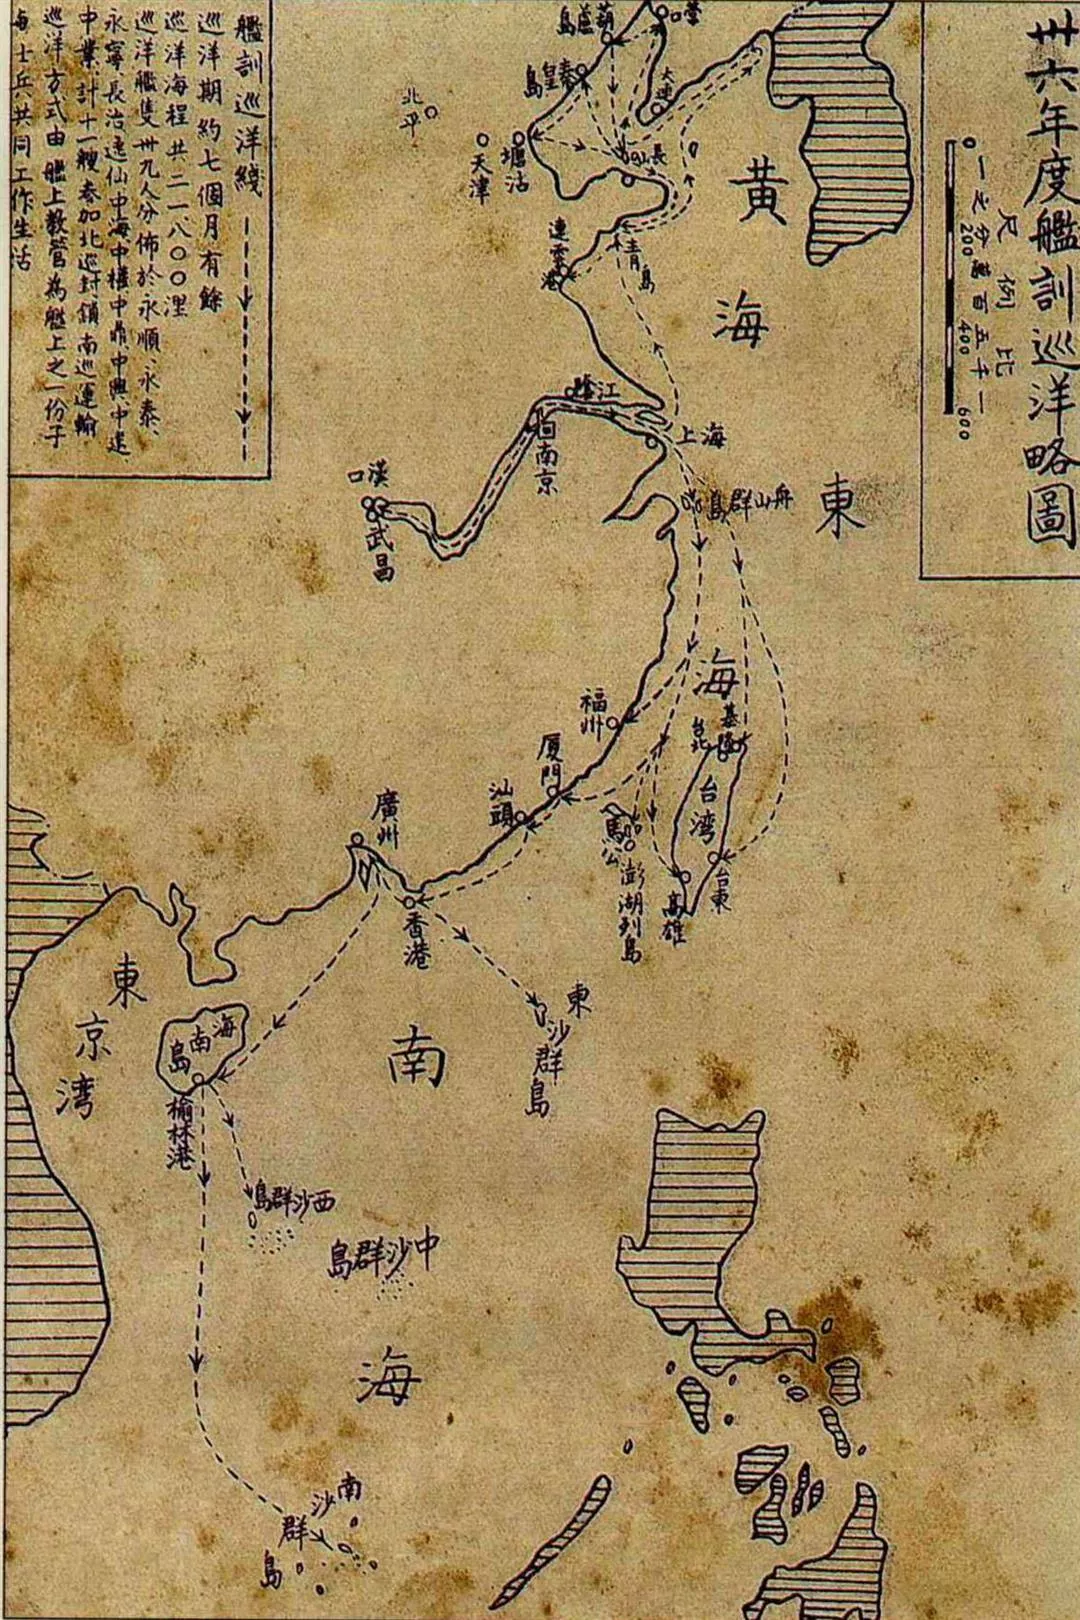 卅六年度艦訓巡洋略圖
尺例比
一之分萬百五千一
0 200 400 600
艦訓巡洋綫
巡洋期約七個月有餘
巡洋海程共二一八〇〇浬
巡洋艦隻卅九人分佈於永順、永泰、
永寧、長治、逸仙、中海、中權、中鼎、中興、中建、
中業、計十一艘參加北巡封鎖南巡運輸
巡洋方式由艦上教管為艦上之一份子
與士兵共同工作生活
營口
葫蘆島
秦皇島
大連
北平
天津
塘沽
長山
黃
海
青島
連雲港
江陰
南京
上海
漢口
武昌
舟山群島
東
海
福州
基隆
台北
台灣
廈門
汕頭
馬公
澎湖列島
高雄
台東
廣州
香港
東沙群島
東京灣
海南島
榆林港
南
海
西沙群島
中沙群島
南沙群島